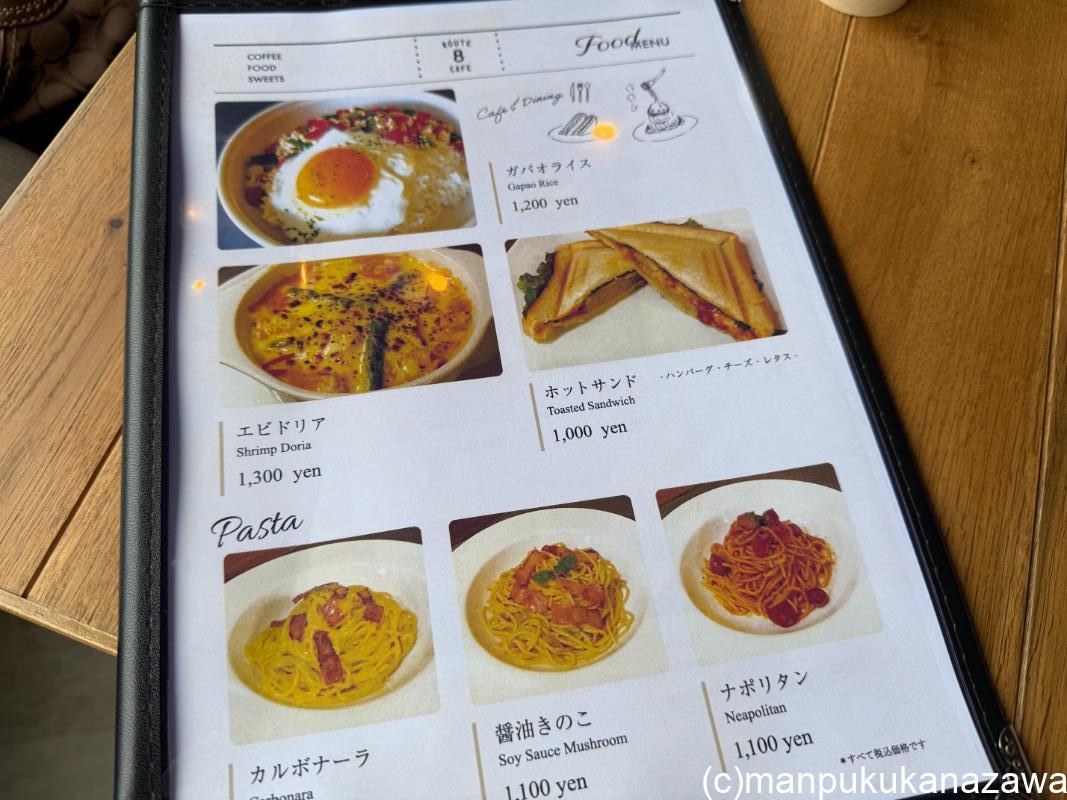 COFFEE
FOOD
SWEETS
ROUTE
8
CAFE
Food MENU
Cafe & Dining
ガパオライス
Gapao Rice
1,200 yen
エビドリア
Shrimp Doria
1,300 yen
ホットサンド
-ハンバーグ・チーズ・レタス-
Toasted Sandwich
1,000 yen
Pasta
カルボナーラ
Carbonara
醤油きのこ
Soy Sauce Mushroom
1,100 yen
ナポリタン
Neapolitan
1,100 yen
*すべて税込価格です
(c)manpukukanazawa